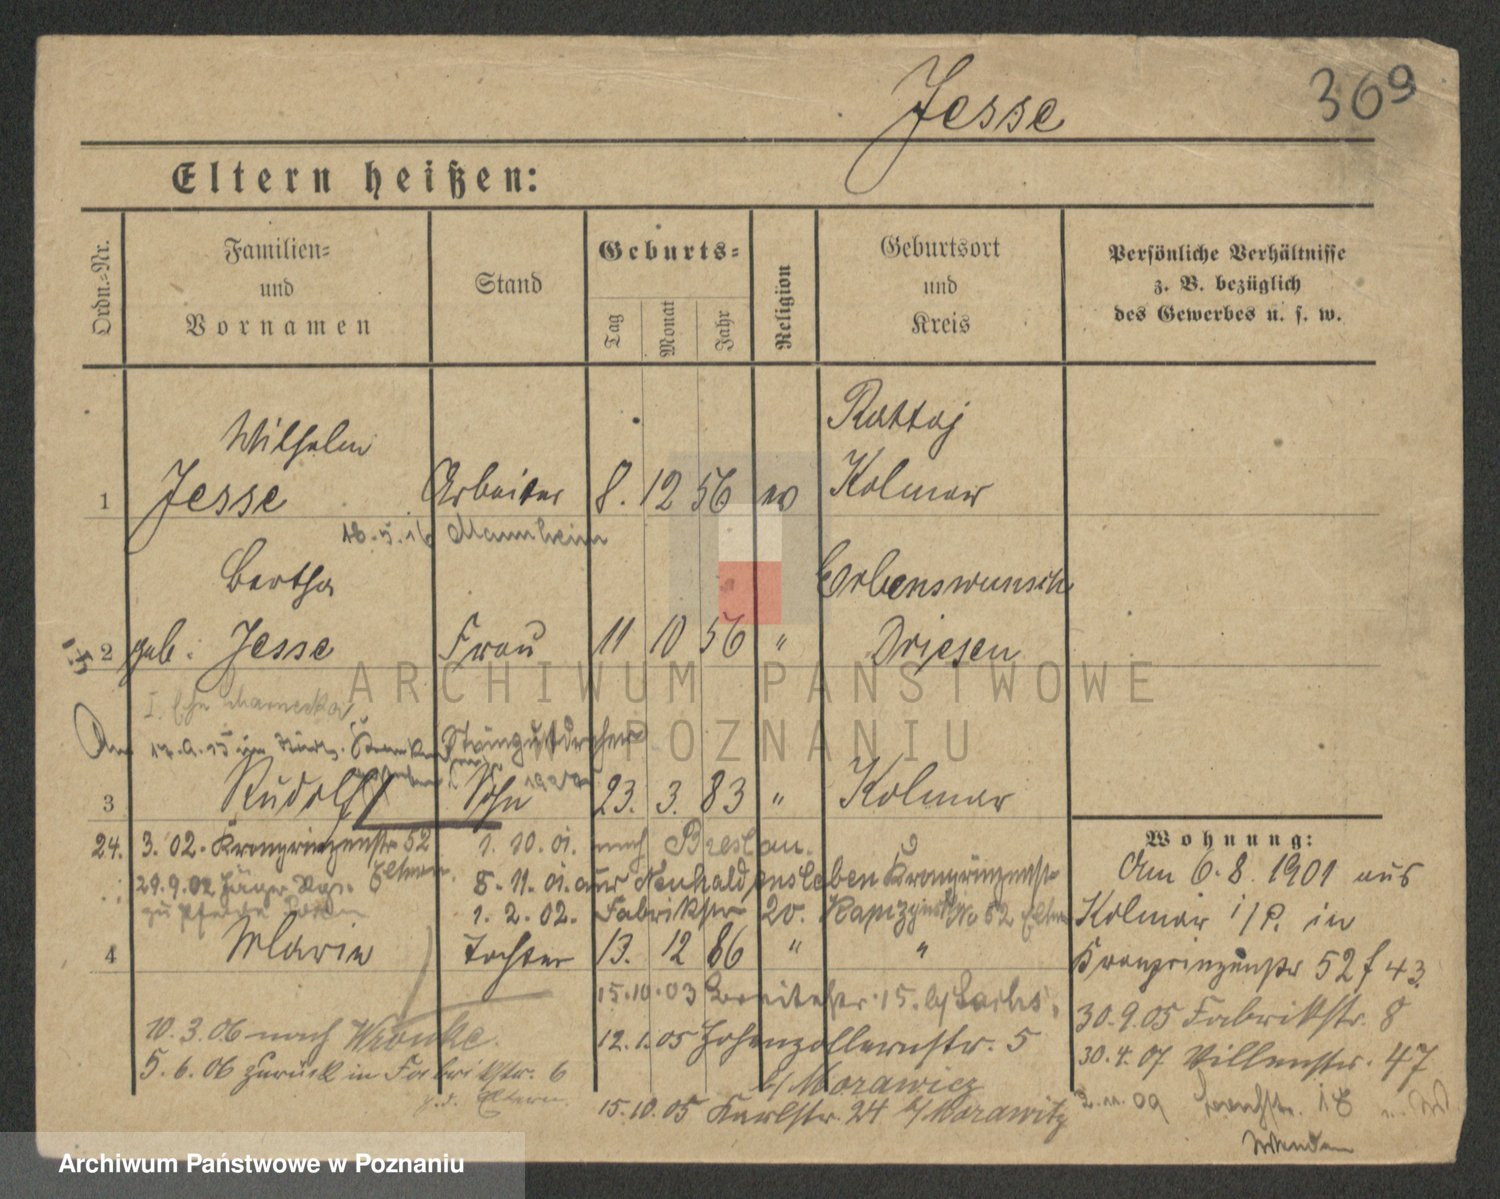 Jesse
369
Eltern heißen:
Ordn.-Nr.
Familien-
und
Vornamen
Stand
Geburts-
Tag
Monat
Jahr
Religion
Geburtsort
und
Kreis
Persönliche Verhältnisse
z. B. bezüglich
des Gewerbes u. s. w.
Wilhelm
Rattaj
1 Jesse Arbeiter 8. 12 56 ev Kolmar
18.5.16 Mannheim
Bertha
Erbenswunsch
2 geb. Jesse Frau 11 10 56 " Driesen
3 Rudolf Sohn 23. 3. 83 " Kolmar
24. 3. 02. Kronprinzenstr 52 Eltern.
1. 10. 01. nach Breslau.
8. 11. 01. aus Neuhaldensleben Kronprinzenstr
29.9.02 Jäger Rgt.
zu Pferde Posen
1. 2. 02. Fabrikstr 20.
52 Eltern
4 Marie Tochter 13. 12 86 " "
15.10.03 Breitestr. 15. b/ Sachs.
10.3.06 nach Wronke.
12.1.05 Hohenzollernstr. 5
b/ Morawicz
5.6.06 zurück in Fabrikstr. 6
z.d. Eltern.
15.10.05 Karlstr. 24 b/ Morawitz
Wohnung:
Am 6.8.1901 aus
Kolmar i/P. in
Kronprinzenstr 52 f 43.
30.9.05 Fabrikstr. 8
30.4.07 Villenstr. 47
2.11.09 18
Wenden
ARCHIWUM PAŃSTWOWE
W POZNANIU
Archiwum Państwowe w Poznaniu